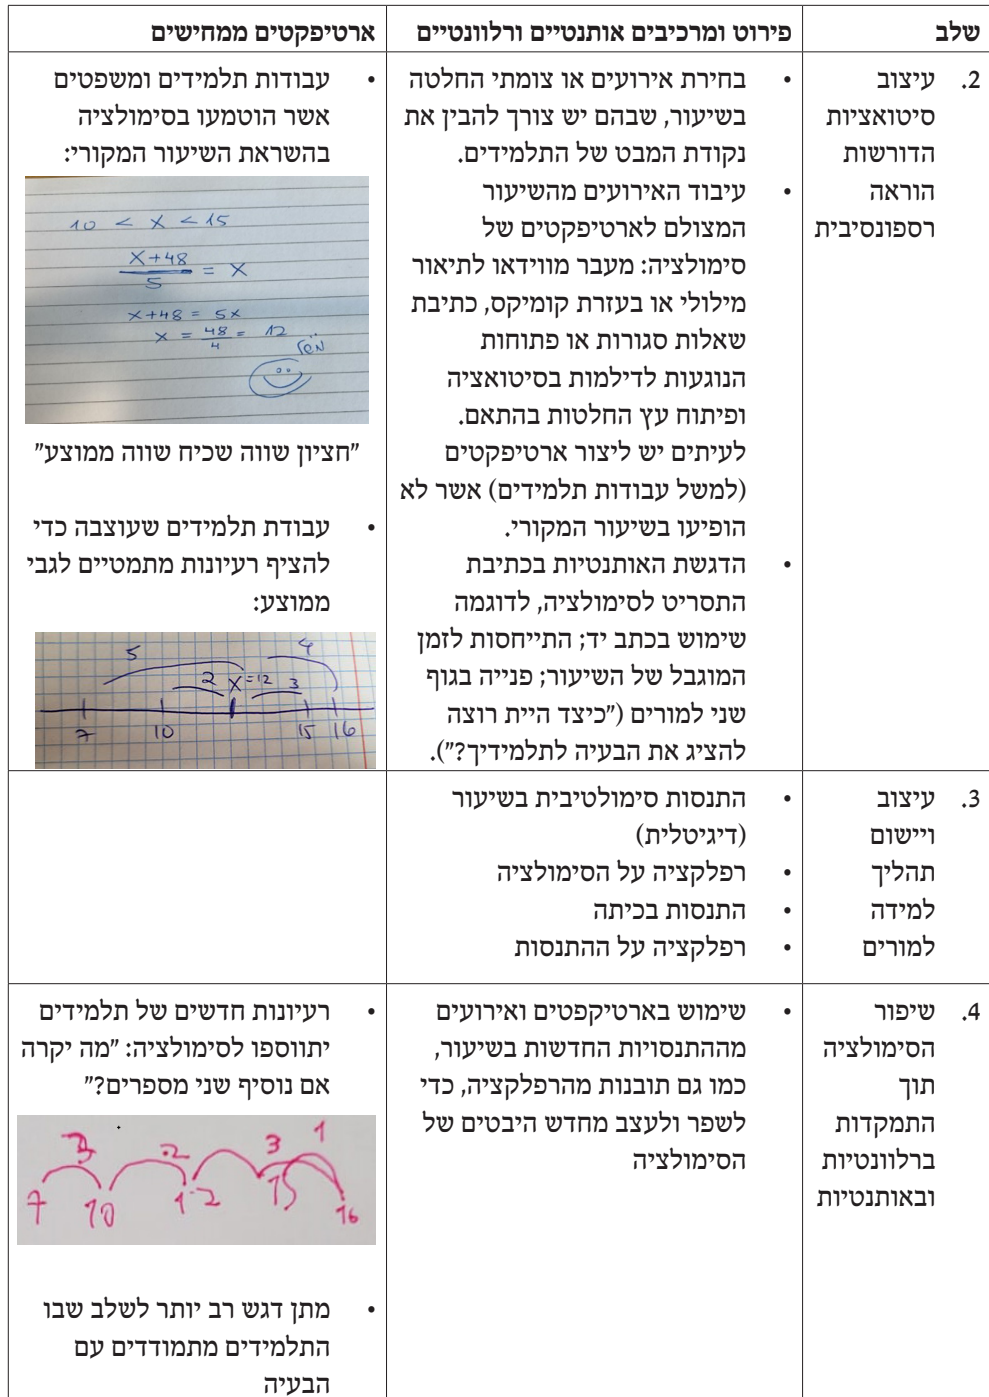 שלב
פירוט ומרכיבים אותנטיים ורלוונטיים
ארטיפקטים ממחישים
2. עיצוב
סיטואציות
הדורשות
הוראה
רספונסיבית
• בחירת אירועים או צומתי החלטה
בשיעור, שבהם יש צורך להבין את
נקודת המבט של התלמידים.
• עיבוד האירועים מהשיעור
המצולם לארטיפקטים של
סימולציה: מעבר מווידאו לתיאור
מילולי או בעזרת קומיקס, כתיבת
שאלות סגורות או פתוחות
הנוגעות לדילמות בסיטואציה
ופיתוח עץ החלטות בהתאם.
לעיתים יש ליצור ארטיפקטים
(למשל עבודות תלמידים) אשר לא
הופיעו בשיעור המקורי.
• הדגשת האותנטיות בכתיבת
התסריט לסימולציה, לדוגמה
שימוש בכתב יד; התייחסות לזמן
המוגבל של השיעור; פנייה בגוף
שני למורים ("כיצד היית רוצה
להציג את הבעיה לתלמידיך?").
• עבודות תלמידים ומשפטים
אשר הוטמעו בסימולציה
בהשראת השיעור המקורי:
10 < x < 15
x+48
5
= x
x+48 = 5x
x = 48/4 = 12
"חציון שווה שכיח שווה ממוצע"
• עבודת תלמידים שעוצבה כדי
להציף רעיונות מתמטיים לגבי
ממוצע:
5 4
2 x=12 3
7 10 15 16
3. עיצוב
ויישום
תהליך
למידה
למורים
• התנסות סימולטיבית בשיעור
(דיגיטלית)
• רפלקציה על הסימולציה
• התנסות בכיתה
• רפלקציה על ההתנסות
4. שיפור
הסימולציה
תוך
התמקדות
ברלוונטיות
ובאותנטיות
• שימוש בארטיקפטים ואירועים
מההתנסויות החדשות בשיעור,
כמו גם תובנות מהרפלקציה, כדי
לשפר ולעצב מחדש היבטים של
הסימולציה
• רעיונות חדשים של תלמידים
יתווספו לסימולציה: "מה יקרה
אם נוסיף שני מספרים?"
3 2 3 1
7 10 12 15 16
• מתן דגש רב יותר לשלב שבו
התלמידים מתמודדים עם
הבעיה